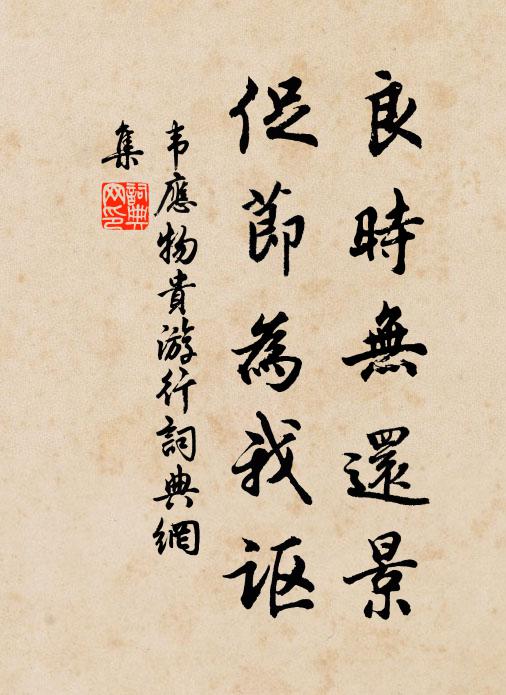 良時無還景
促節為我讴
韦應物貴游行詞典網
集
詞典
网印